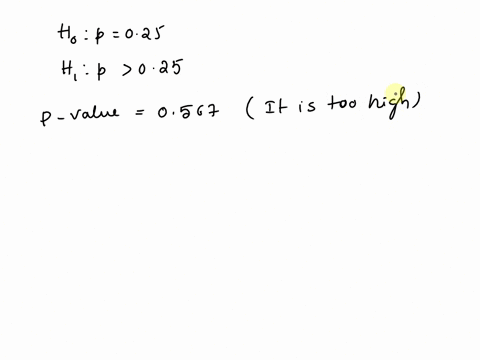 H₀ : p = 0.25
H₁ : p > 0.25
p-value = 0.567 ( It is too high)